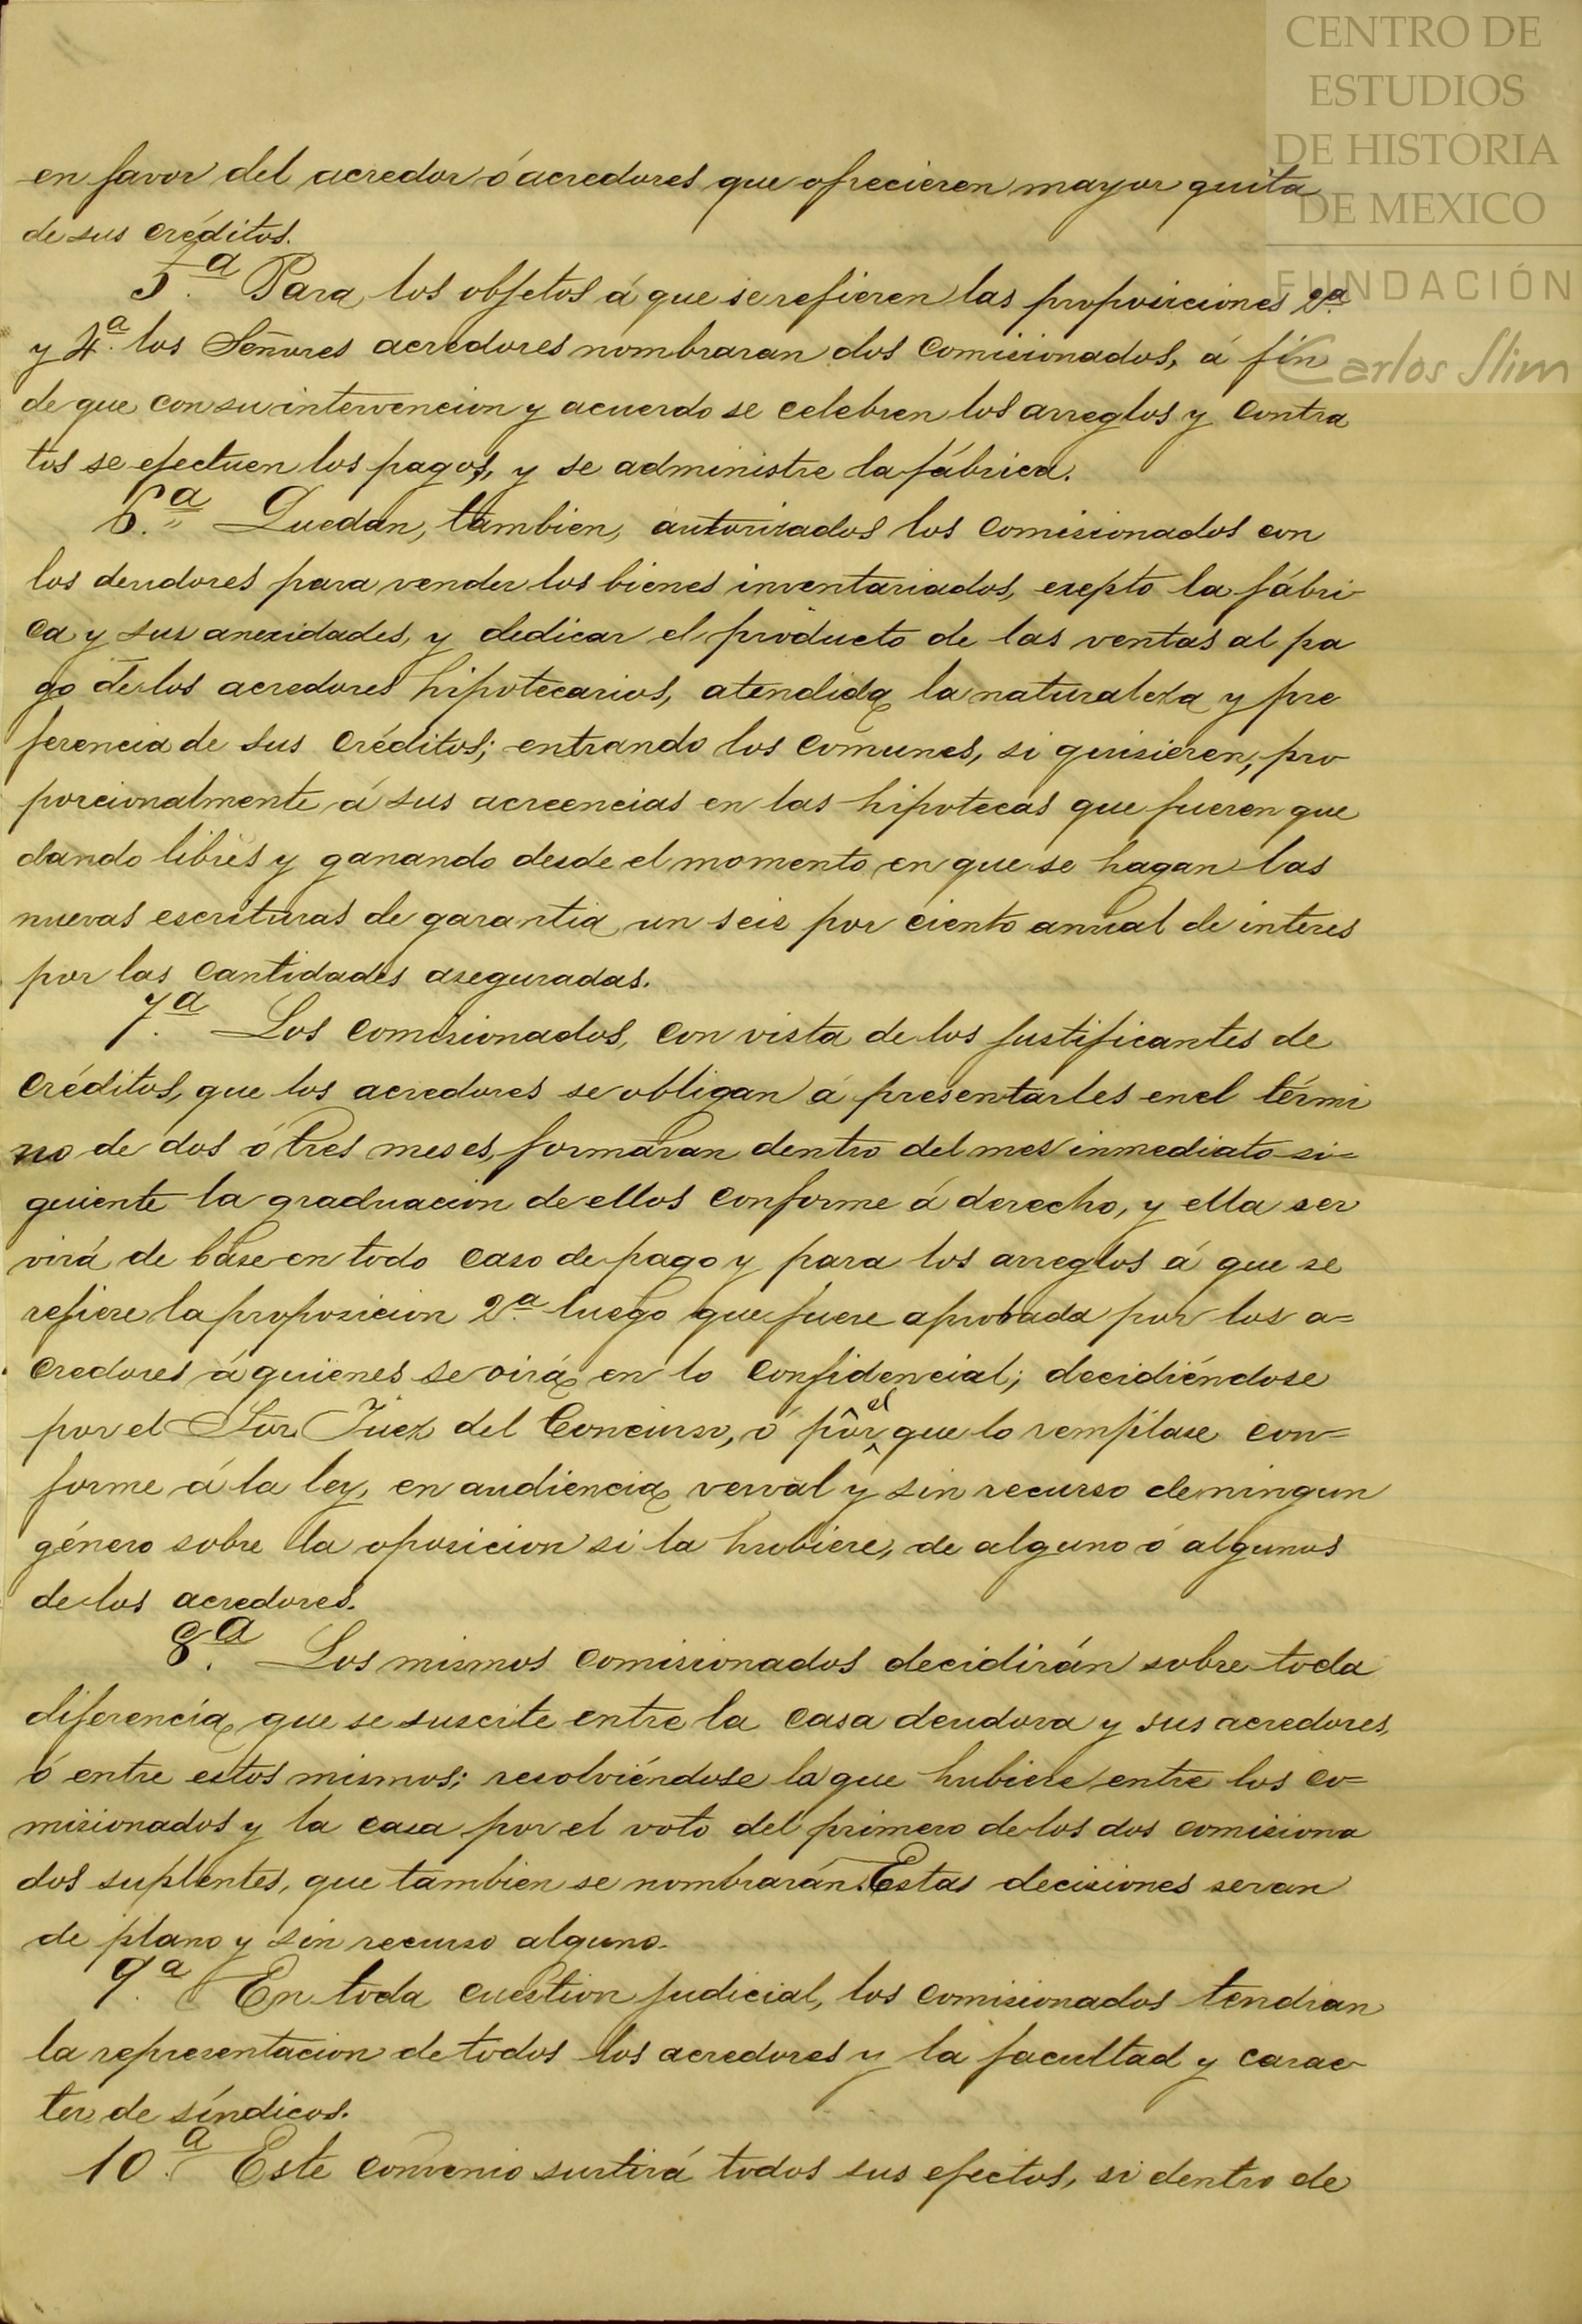 CENTRO DE
ESTUDIOS
DE HISTORIA
DE MEXICO
FUNDACIÓN
Carlos Slim
en favor del acredor ó acredores que ofrecieren mayor quita
de sus créditos.
5.ª Para los objetos á que se refieren las proposiciones 2.ª
y 4.ª los Señores acredores nombraran dos comisionados, á fin
de que con su intervencion y acuerdo se celebren los arreglos y contra
tos se efectuen los pagos, y se administre la fábrica.
6.ª Quedan, tambien, autorizados los comisionados con
los deudores para vender los bienes inventariados, exepto la fábri-
ca y sus anexidades, y dedicar el producto de las ventas al pa
go de los acredores hipotecarios, atendida la naturaleza y pre
ferencia de sus créditos; entrando los comunes, si quisieren, pro
porcionalmente á sus acreencias en las hipotecas que fueren que
dando libres y ganando desde el momento en que se hagan las
nuevas escrituras de garantia un seis por ciento anual de interes
por las cantidades aseguradas.
7.ª Los comisionados, con vista de los justificantes de
créditos, que los acredores se obligan á presentarles en el térmi
no de dos ó tres meses, formaran dentro del mes inmediato si=
guiente la graduacion de ellos conforme á derecho, y ella ser
virá de base en todo caso de pago y para los arreglos á que se
refiere la proposicion 2.ª luego que fuere aprobada por los a=
credores á quienes se oirá en lo confidencial; decidiéndose
por el Sor. Juez del Concurso, ó por el que lo remplase con=
forme á la ley, en audiencia verval y sin recurso de ningun
género sobre la oposicion si la hubiere, de alguno ó algunos
de los acredores.
8.ª Los mismos comisionados decidirán sobre toda
diferencia que se suscite entre la casa deudora y sus acredores,
ó entre estos mismos; resolviéndose la que hubiere entre los co=
misionados y la casa por el voto del primero de los dos comisiona
dos suplentes, que tambien se nombrarán. Estas decisiones seran
de plano y sin recurso alguno.
9.ª En toda cuestion judicial, los comisionados tendran
la representacion de todos los acredores y la facultad y carac-
ter de síndicos.
10.ª Este convenio surtirá todos sus efectos, si dentro de